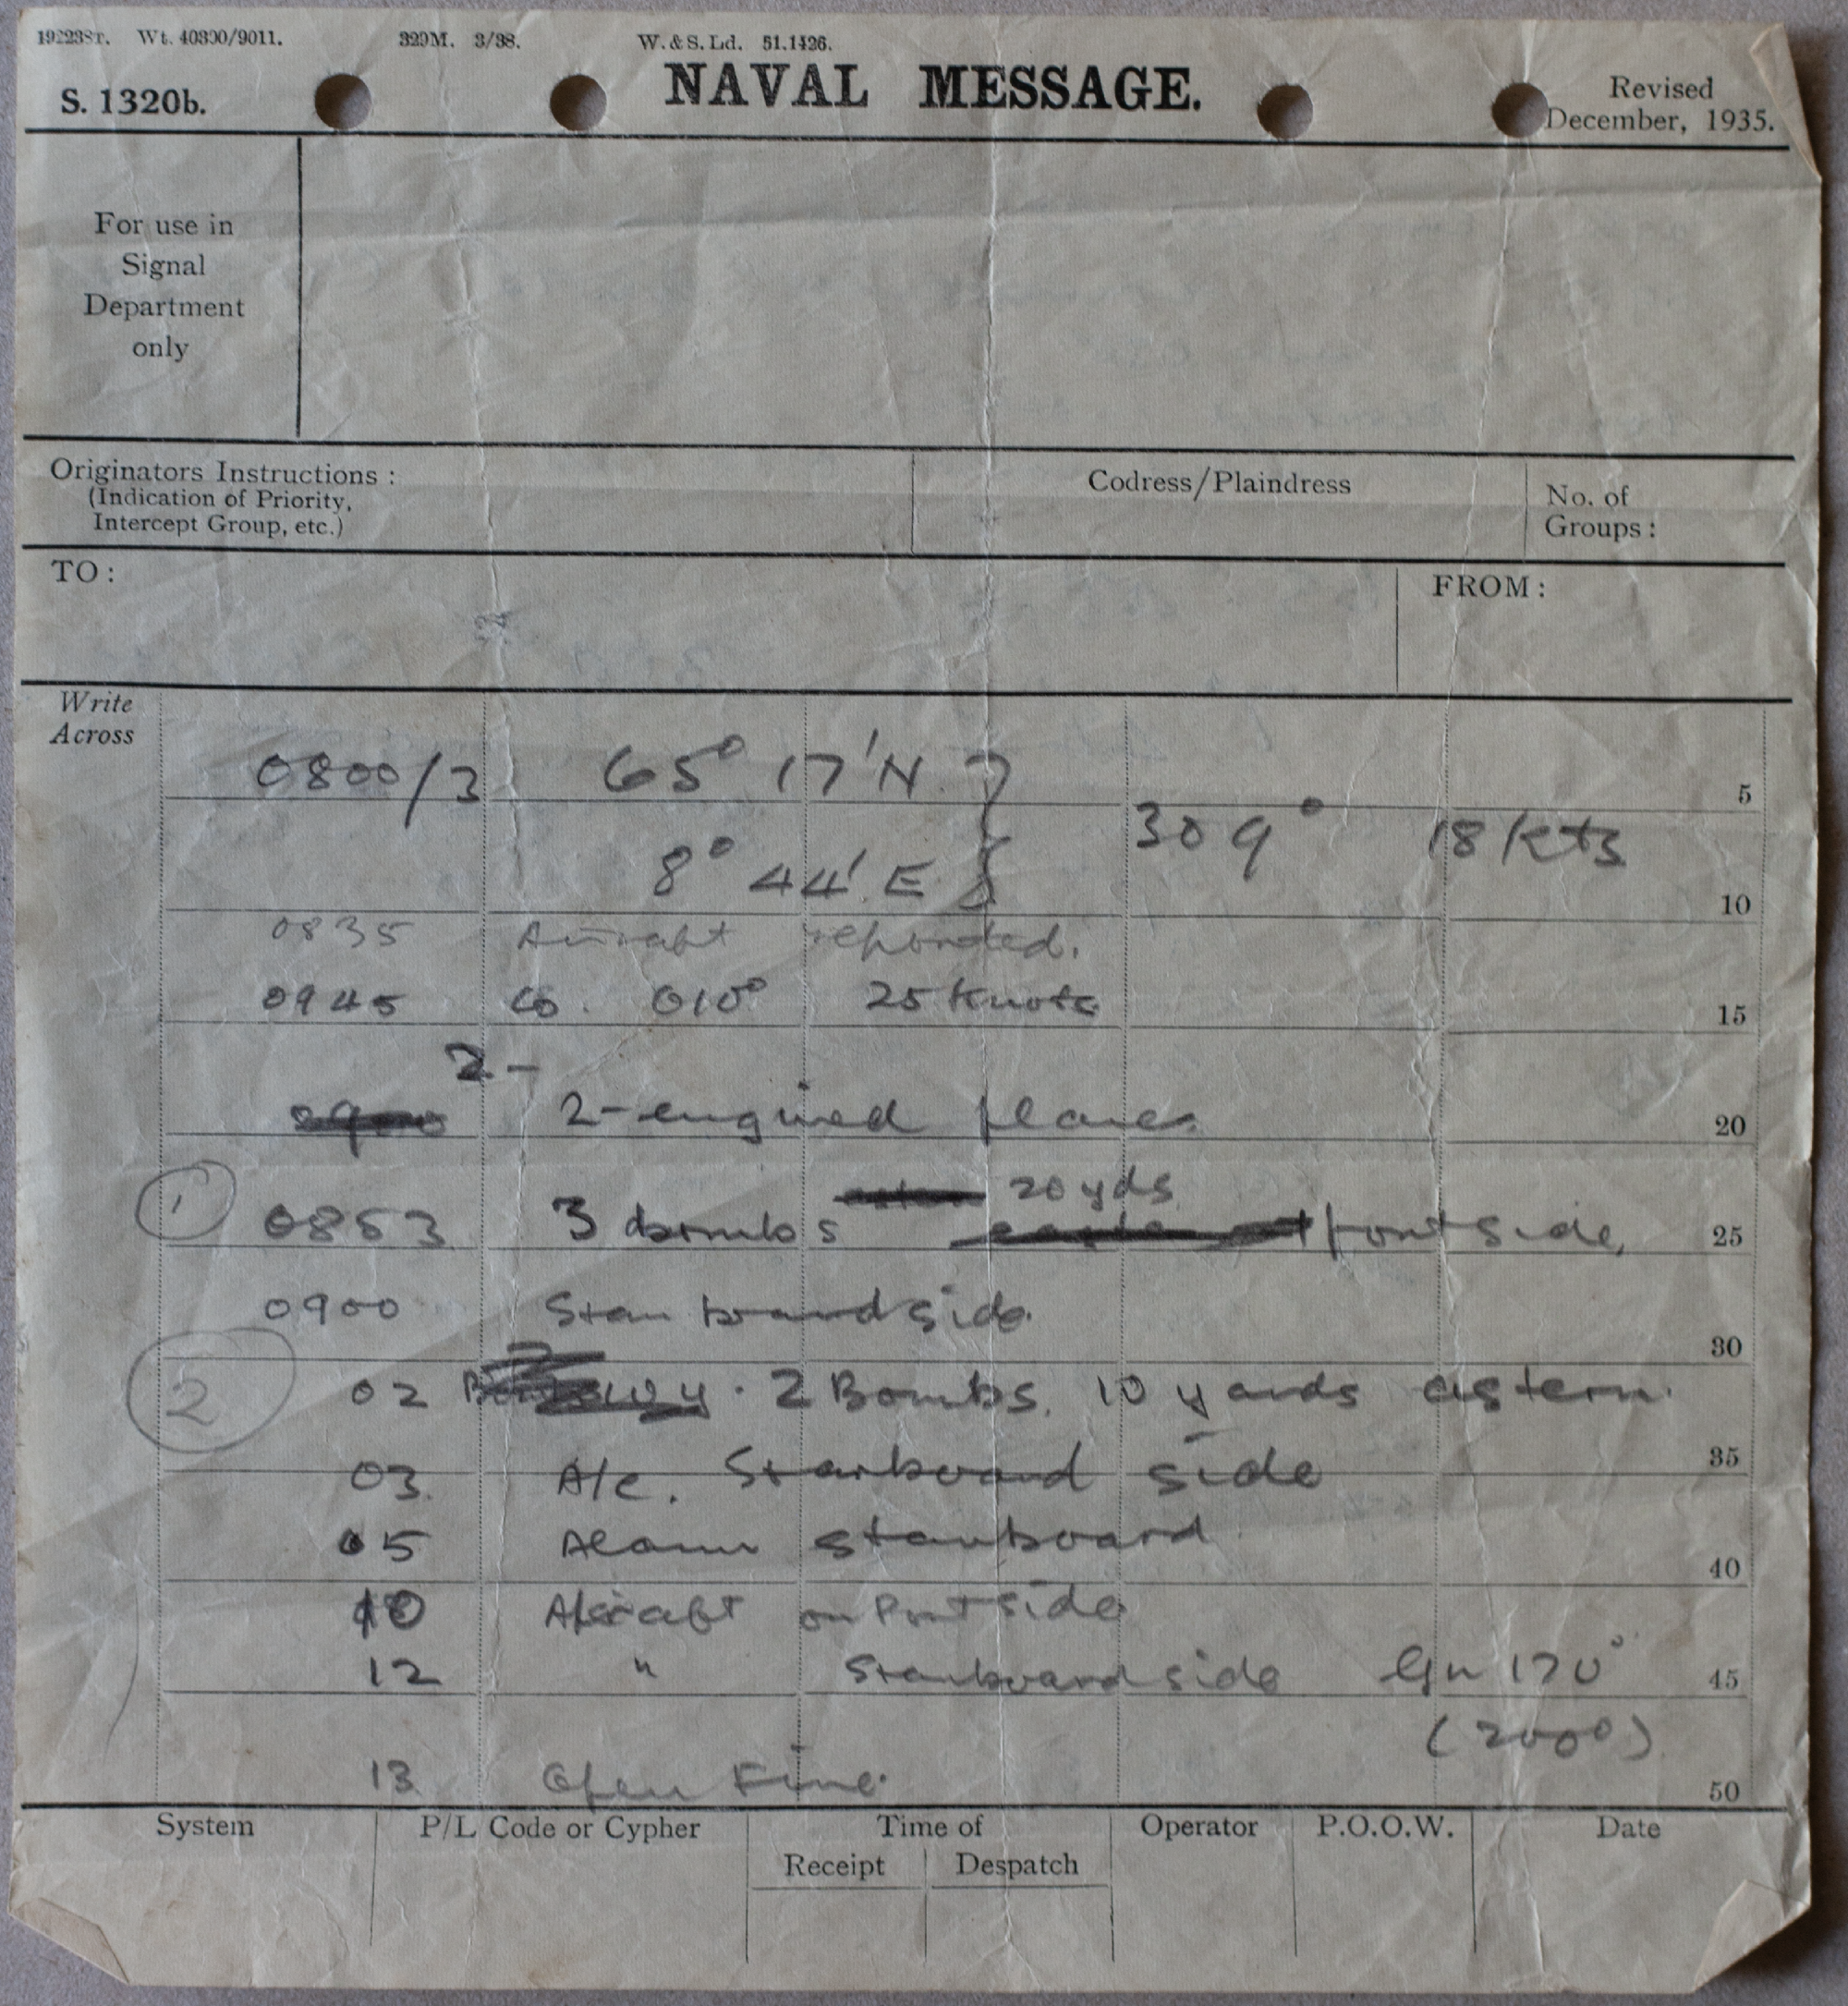 19223Sr. Wt. 40300/9011. 329M. 3/38. W. & S. Ld. 51.1426.
S. 1320b. NAVAL MESSAGE. Revised December, 1935.
For use in
Signal
Department
only
Originators Instructions : Codress/Plaindress No. of
(Indication of Priority, Groups :
Intercept Group, etc.)
TO : FROM :
Write
Across
0800/3 65° 17' N } 5
309° 18 kts
8° 44' E } 10
0835 Aircraft reported.
0945 Co. 010° 25 Knots 15
2 -
0900 2-engined planes 20
20 yds
1 0853 3 bombs port side, 25
0900 Starboard side.
30
2 02 2 Bombs. 10 yards astern.
03. A/c. Starboard side 35
05 Alarm starboard
40
10 Aircraft on Port side
12 " Starboard side Gn 170° 45
(2000)
13 Open Fire. 50
System P/L Code or Cypher Time of Operator P.O.O.W. Date
Receipt Despatch